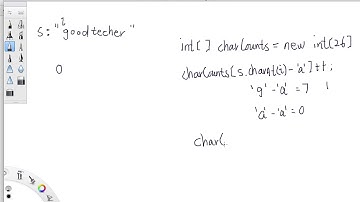 i
s: "goodtecher"
int[] charCounts = new int[26]
0
charCounts[s.charAt(i)-'a']++;
'g'-'a' = 7 1
'a'-'a' = 0
charC